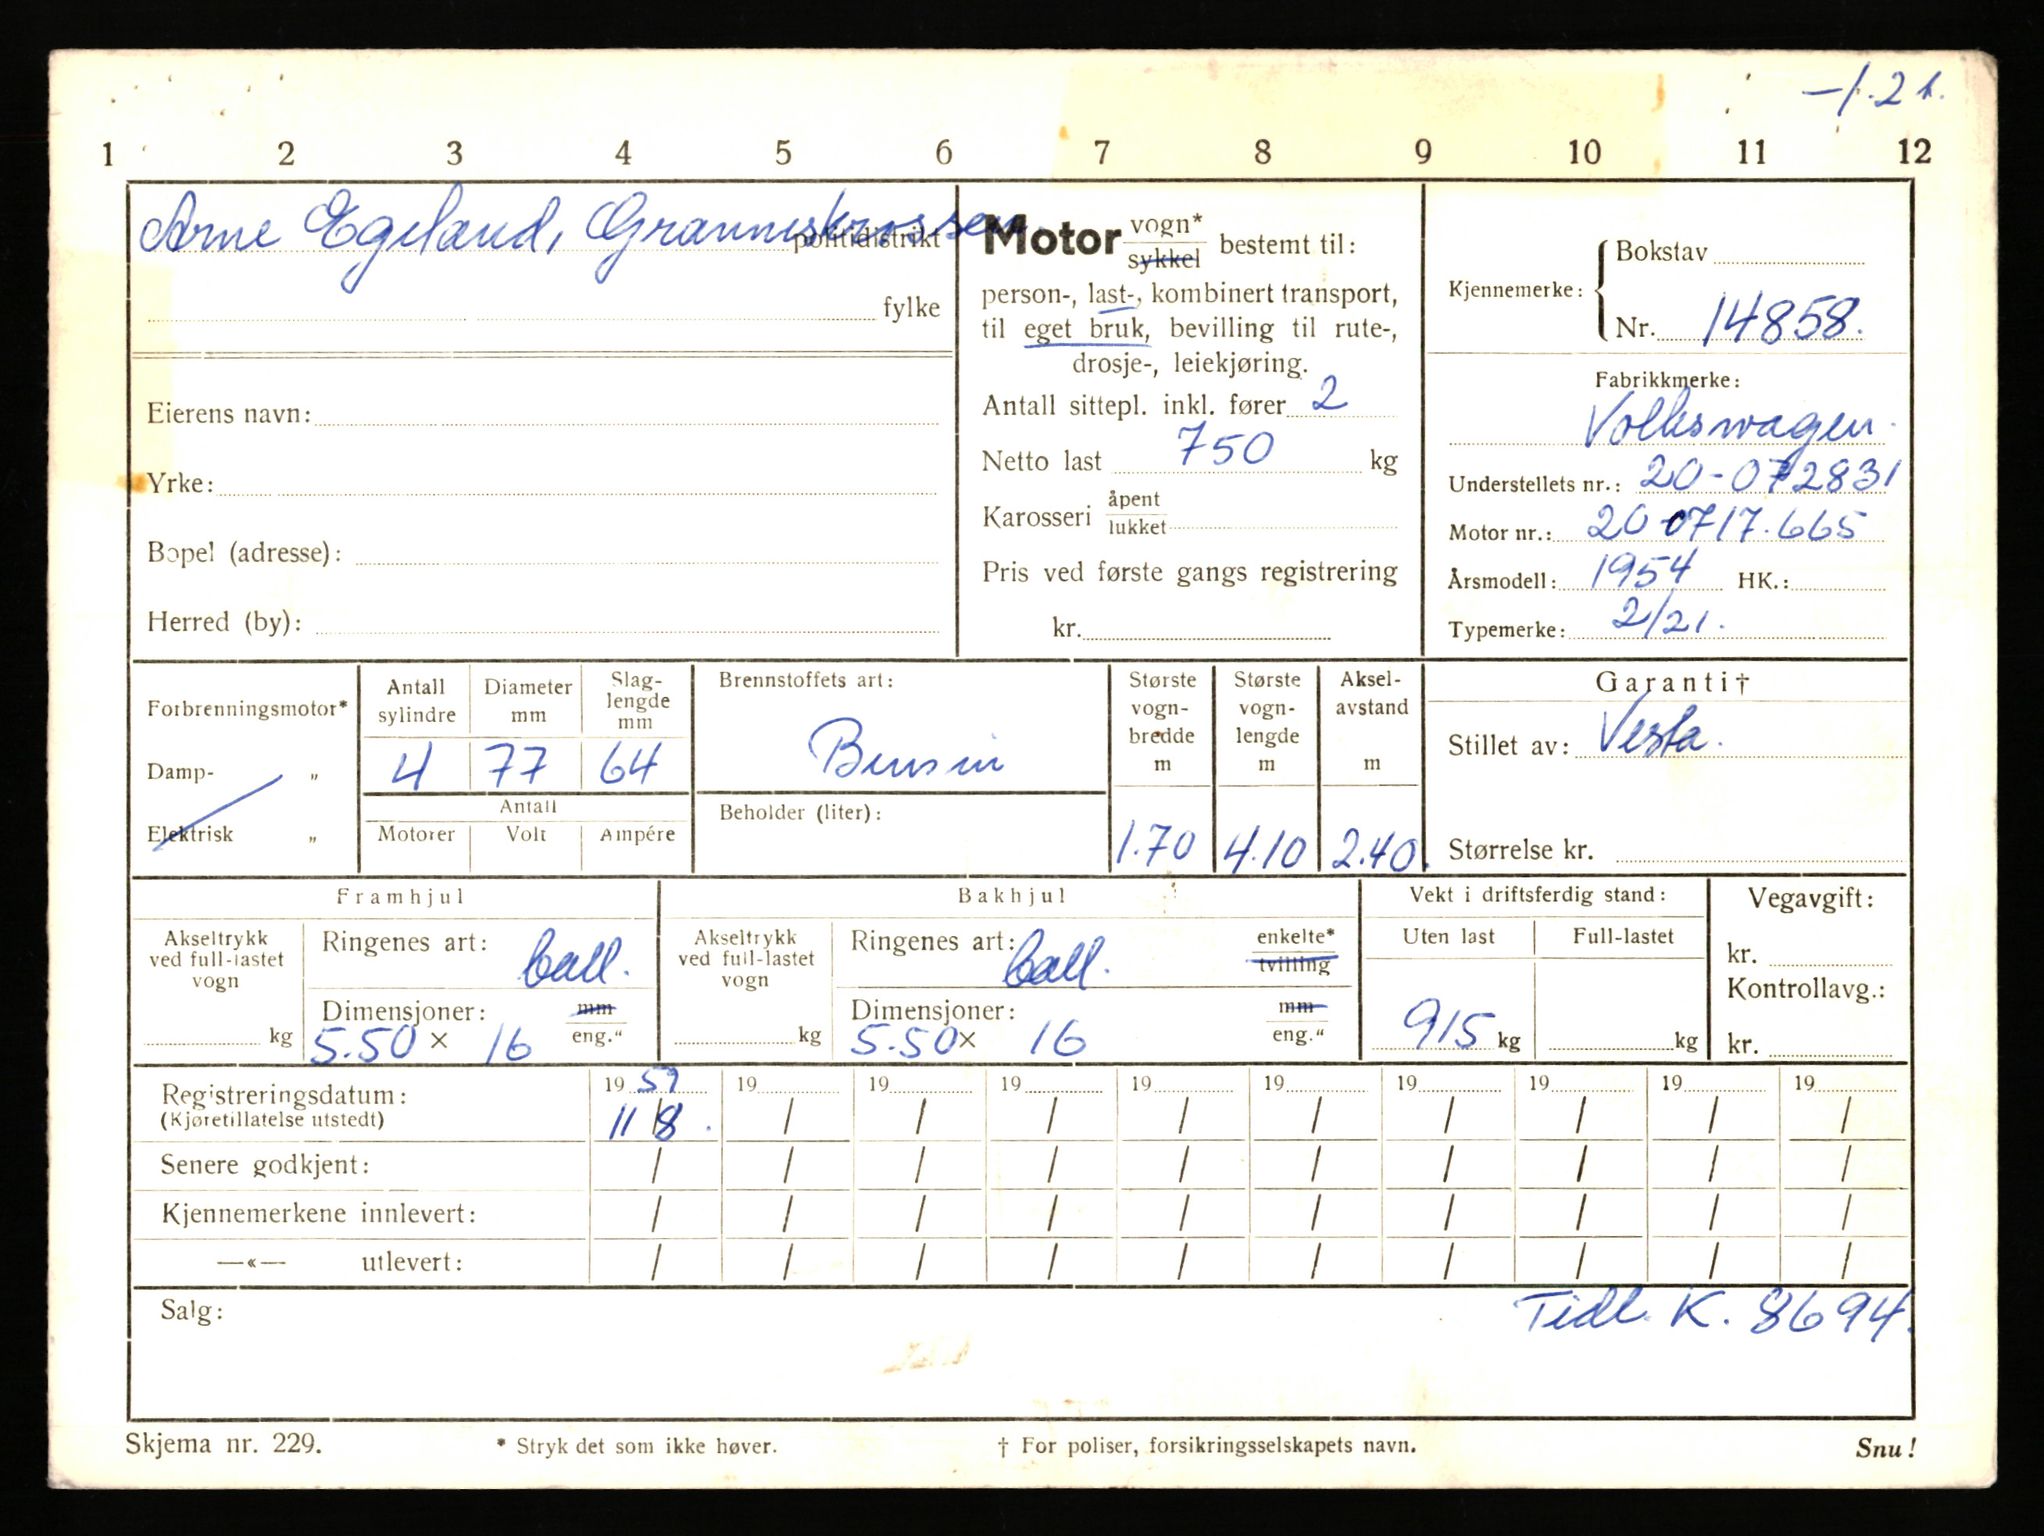 —1.21.
1 2 3 4 5 6 7 8 9 10 11 12
Arne Egeland, Granneskrossen
politidistrikt
fylke
Eierens navn:
Yrke:
Bopel (adresse):
Herred (by):
Motor vogn* sykkel bestemt til:
person-, last-, kombinert transport,
til eget bruk, bevilling til rute-,
drosje-, leiekjøring.
Antall sittepl. inkl. fører 2
Netto last 750 kg
Karosseri åpent lukket
Pris ved første gangs registrering
kr.
Kjennemerke: Bokstav
Nr. 14858.
Fabrikkmerke:
Volkswagen.
Understellets nr.: 20-072831
Motor nr.: 20-0717.665
Årsmodell: 1954 HK.:
Typemerke: 2/21.
Forbrenningsmotor*
Damp- „
Elektrisk „
Antall sylindre
Diameter mm
Slag-lengde mm
4 77 64
Antall
Motorer Volt Ampére
Brennstoffets art:
Bensin
Beholder (liter):
Største vogn-bredde m
1.70
Største vogn-lengde m
4.10
Aksel-avstand m
2.40.
Garanti†
Stillet av: Vesta.
Størrelse kr.
Framhjul
Akseltrykk ved full-lastet vogn
kg
Ringenes art: ball.
Dimensjoner: mm eng."
5.50 × 16
Bakhjul
Akseltrykk ved full-lastet vogn
kg
Ringenes art: ball. enkelte* tvilling
Dimensjoner: mm eng."
5.50 × 16
Vekt i driftsferdig stand:
Uten last Full-lastet
915 kg kg
Vegavgift:
kr.
Kontrollavg.:
kr.
Registreringsdatum: 19 57 19 19 19 19 19 19 19 19 19
(Kjøretillatelse utstedt) 11/8. / / / / / / / / /
Senere godkjent: / / / / / / / / / /
Kjennemerkene innlevert: / / / / / / / / / /
—«— utlevert: / / / / / / / / / /
Salg:
Tidl. K. 8694.
Skjema nr. 229.
* Stryk det som ikke høver.
† For poliser, forsikringsselskapets navn.
Snu!